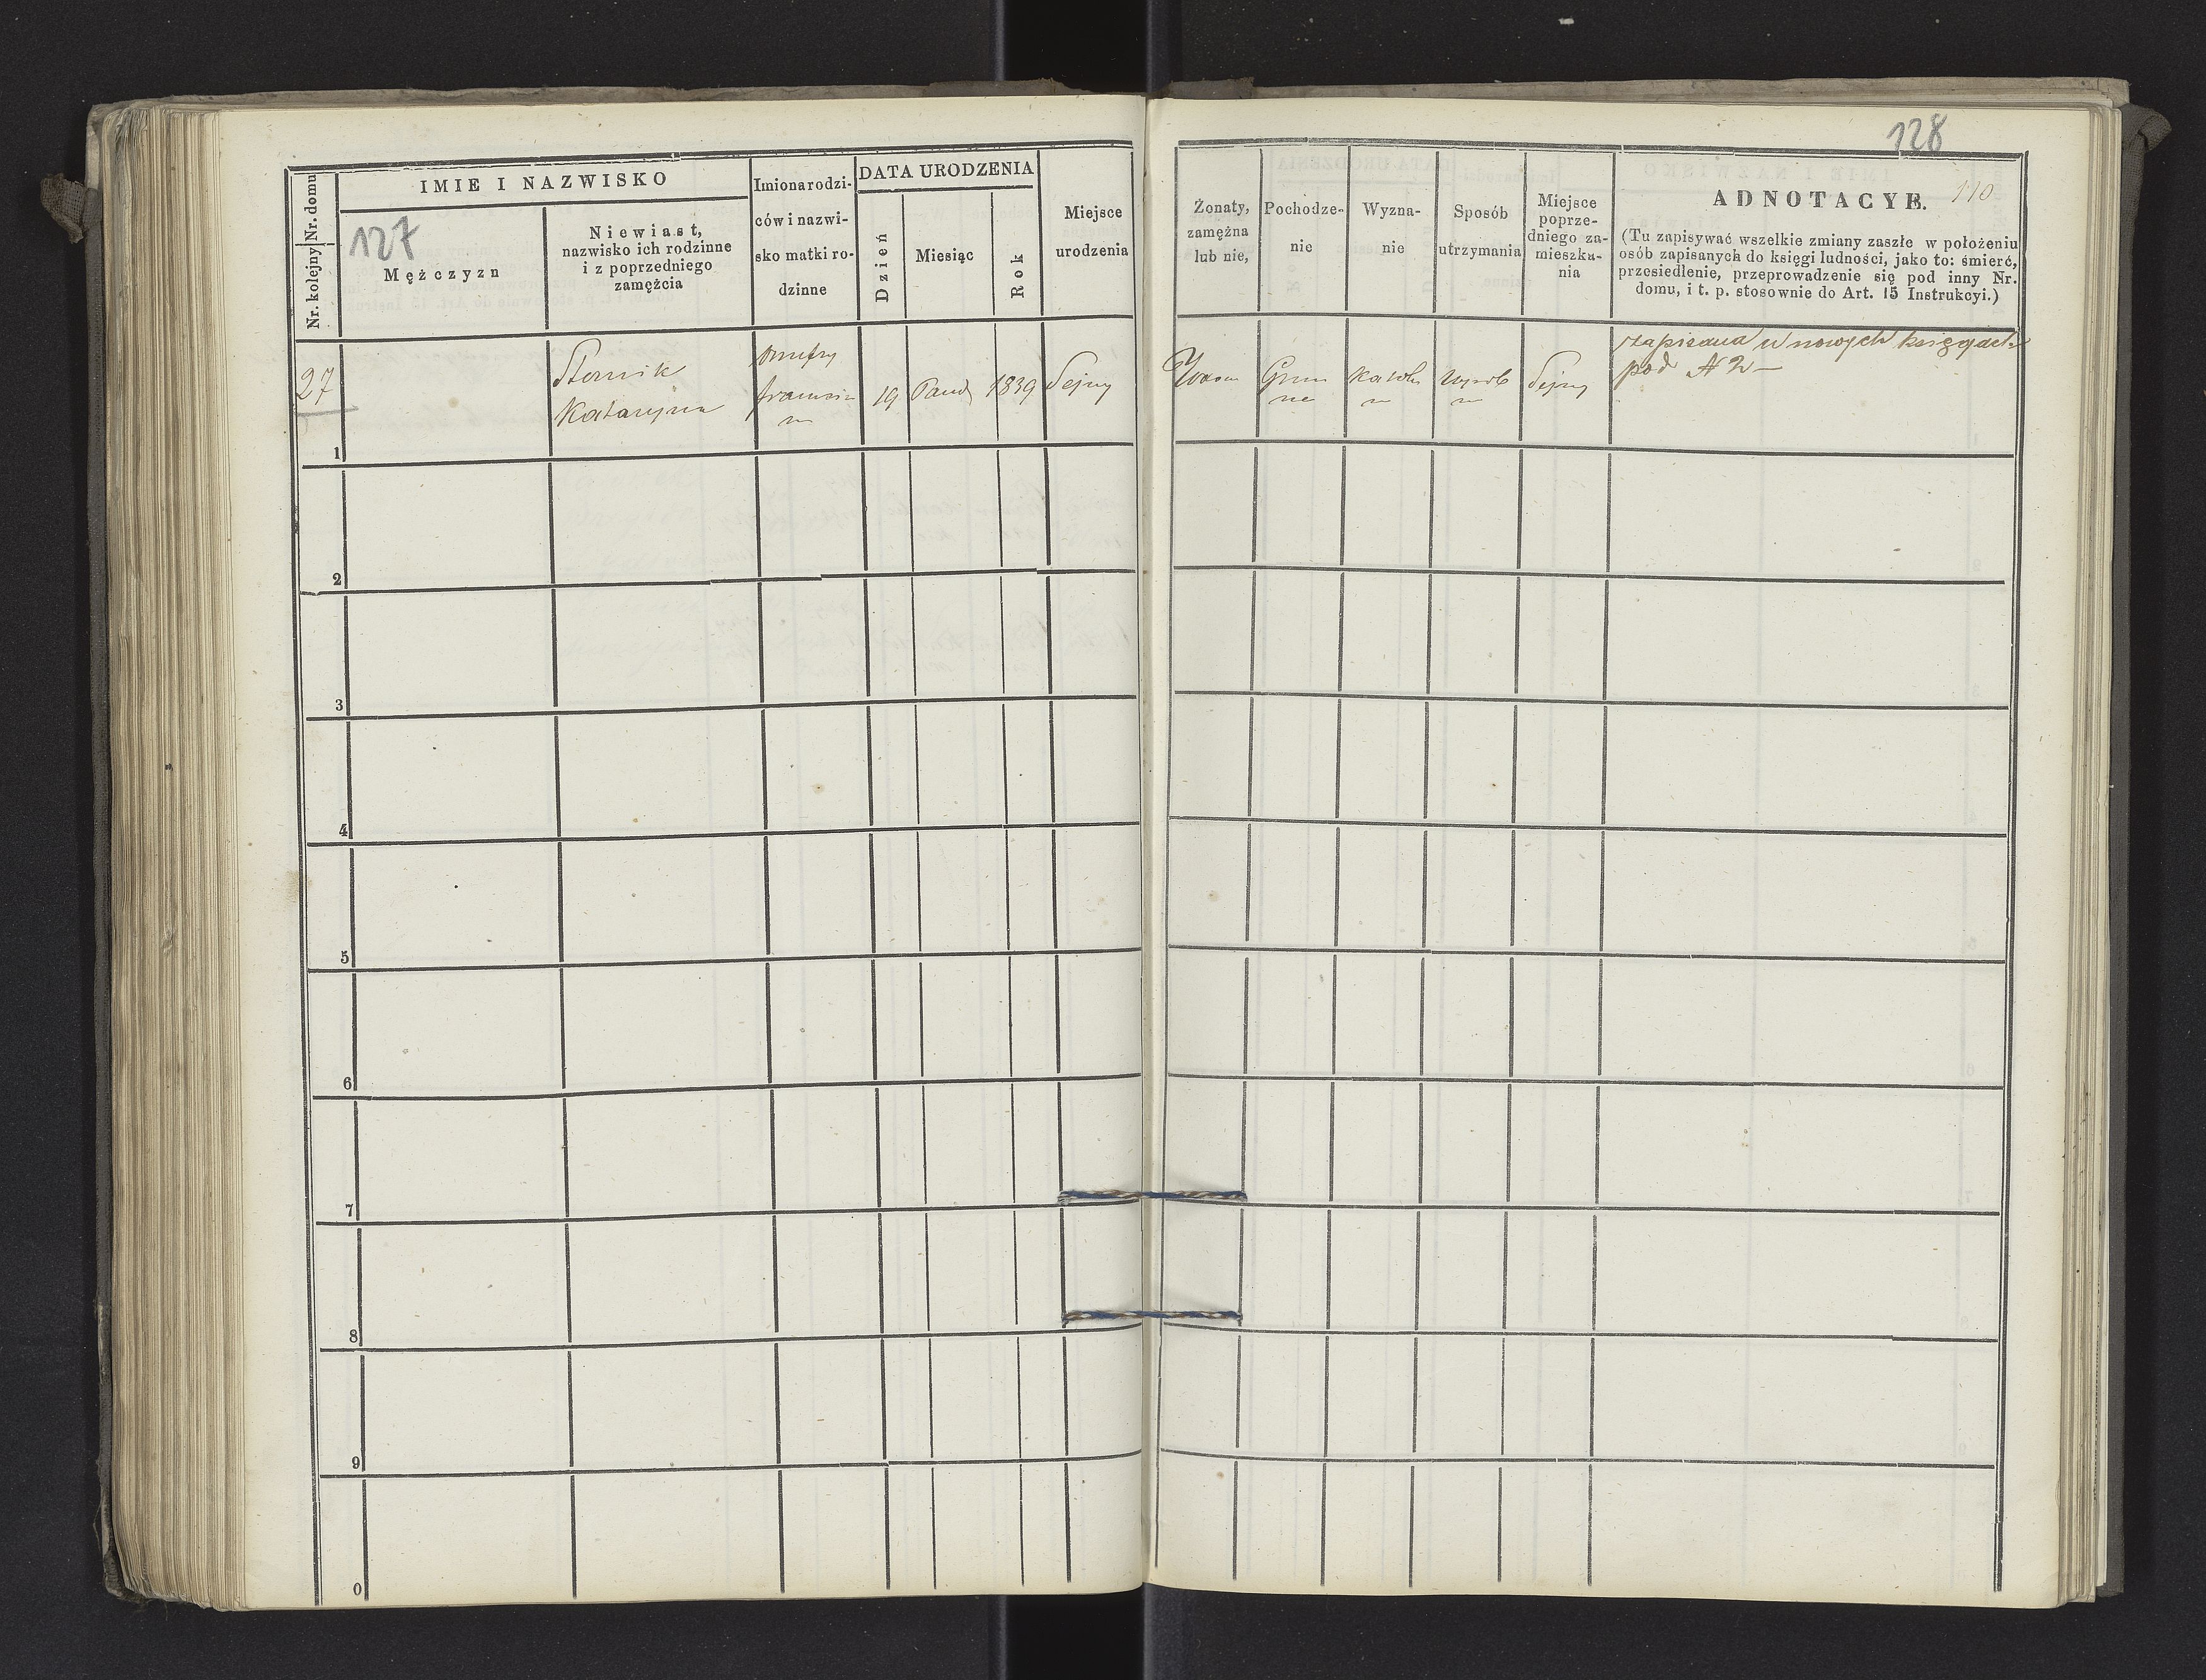 128
Nr. domu
Nr. kolejny
IMIE I NAZWISKO
127
Mężczyzn
Niewiast,
nazwisko ich rodzinne
i z poprzedniego
zamężcia
Imiona rodzi-
ców i nazwi-
sko matki ro-
dzinne
DATA URODZENIA
Dzień
Miesiąc
Rok
Miejsce
urodzenia
Żonaty,
zamężna
lub nie,
Pochodze-
nie
Wyzna-
nie
Sposób
utrzymania
Miejsce
poprze-
dniego za-
mieszka-
nia
ADNOTACYE. 110
(Tu zapisywać wszelkie zmiany zaszłe w położeniu
osób zapisanych do księgi ludności, jako to: śmierć,
przesiedlenie, przeprowadzenie się pod inny Nr.
domu, i t. p. stosownie do Art. 15 Instrukcyi.)
27
1
Katarzyna
Onufry
19
1839
Sejny
Sejny
zapisana w nowych księgach
pod N 2
2
3
4
5
6
7
8
9
0